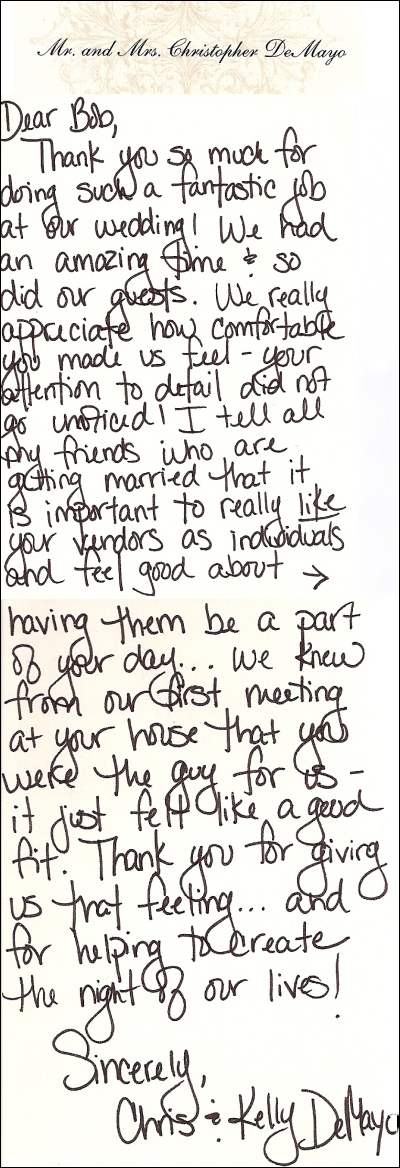 Mr. and Mrs. Christopher DeMayo
Dear Bob,
Thank you so much for
doing such a fantastic job
at our wedding! We had
an amazing time & so
did our guests. We really
appreciate how comfortable
you made us feel - your
attention to detail did not
go unnoticed! I tell all
my friends who are
getting married that it
is important to really like
your vendors as individuals
and feel good about →
having them be a part
of your day... We knew
from our first meeting
at your house that you
were the guy for us -
it just felt like a good
fit. Thank you for giving
us that feeling... and
for helping to create
the night of our lives!
Sincerely,
Chris & Kelly DeMayo